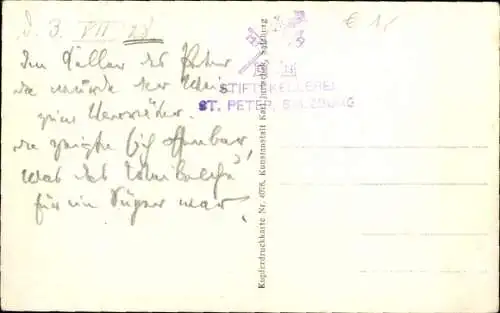 d. 3. VII 28
€ 1,-
Im Keller des Peter
da wurde der Wein
zum Verräter.
da zeigte sich
was das
für ein war.
STIFTSKELLEREI
ST. PETER, SALZBURG
Kupferdruckkarte Nr. Kunstanstalt Karl Jurischek, Salzburg